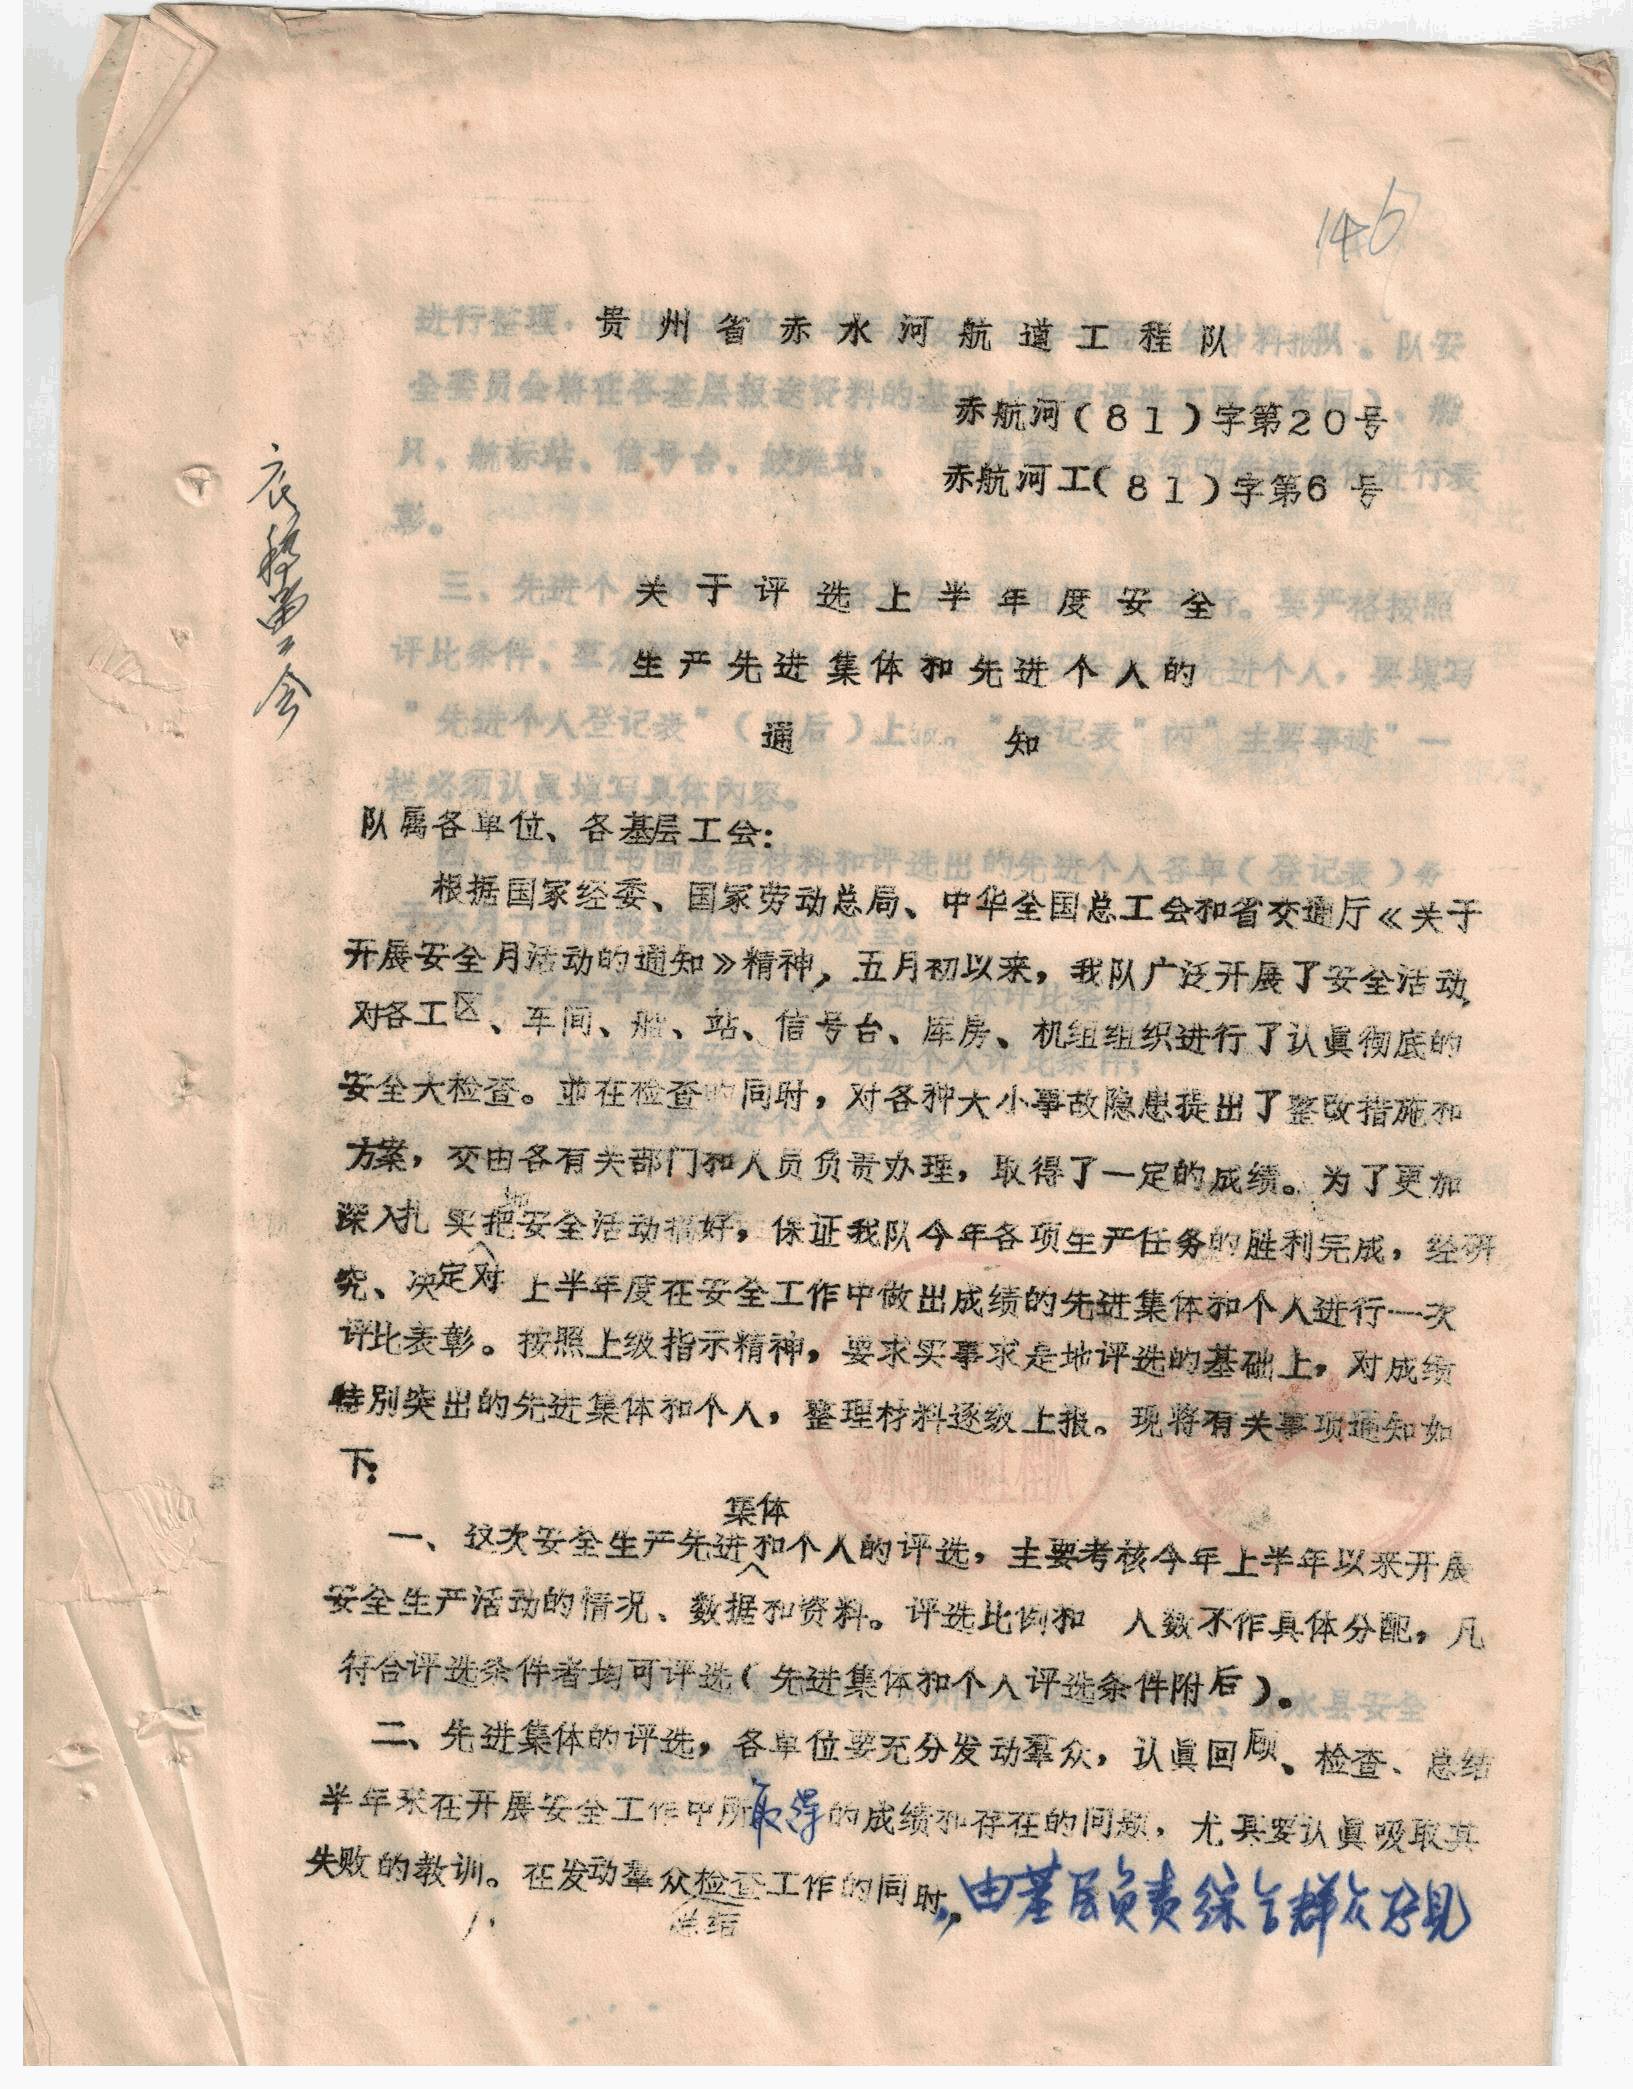 146
贵州省赤水河航道工程队
赤航河(81)字第20号
赤航河工(81)字第6号
关于评选上半年度安全
生产先进集体和先进个人的
通 知
队属各单位、各基层工会:
根据国家经委、国家劳动总局、中华全国总工会和省交通厅《关于
开展安全月活动的通知》精神,五月初以来,我队广泛开展了安全活动,
对各工区、车间、船、站、信号台、库房、机组组织进行了认眞彻底的
安全大检查。並在检查的同时,对各种大小事故隐患提出了整改措施和
方案,交由各有关部门和人员负责办理,取得了一定的成绩。为了更加
深入扎实把安全活动搞好,保证我队今年各项生产任务的胜利完成,经研
究、决定对上半年度在安全工作中做出成绩的先进集体和个人进行一次
评比表彰。按照上级指示精神,要求实事求是地评选的基础上,对成绩
特别突出的先进集体和个人,整理材料逐级上报。现将有关事项通知如
下:
集体
一、这次安全生产先进和个人的评选,主要考核今年上半年以来开展
安全生产活动的情况、数据和资料。评选比例和 人数不作具体分配,凡
符合评选条件者均可评选(先进集体和个人评选条件附后)。
二、先进集体的评选,各单位要充分发动羣众,认眞回顾、检查、总结
半年来在开展安全工作中所取得的成绩和存在的问题,尤其要认眞吸取其
失败的教训。在发动羣众检查工作的同时,由基层负责综合群众意见
总结